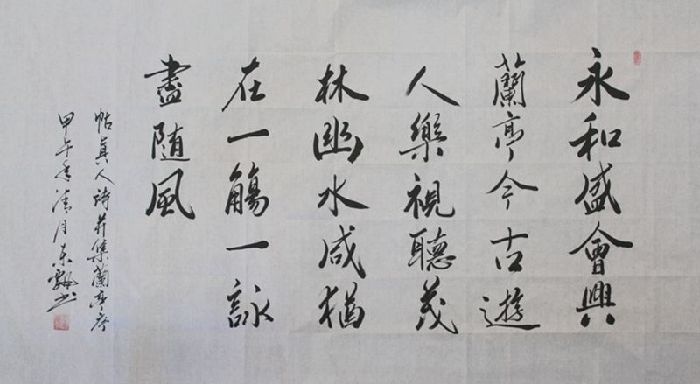 永和盛會興
蘭亭今古遊
人樂視聽茂
林幽水咸猶
在一觴一詠
盡隨風
帖真人詩并集蘭亭序
甲午清月东梅书